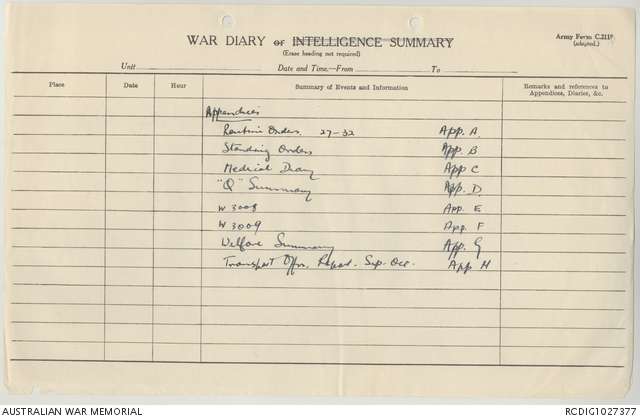 WAR DIARY of INTELLIGENCE SUMMARY
(Erase heading not required)
Army Form C.2118
(adapted.)
Unit Date and Time.—From To
Place Date Hour Summary of Events and Information Remarks and references to Appendices, Diaries, &c.
Appendices
Routine Orders. 27-32 App. A
Standing Orders App. B
Medical Diary App C
"Q" Summary App. D
W 3008 App. E
W 3009 App. F
Welfare Summary App. G
Transport Offrs. Report. Sep. Oct. App H
AUSTRALIAN WAR MEMORIAL
RCDIG1027377